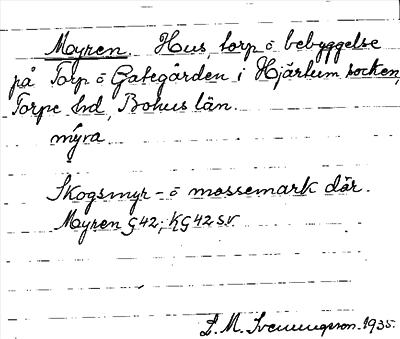 Myren. Hus, torp o bebyggelse
på Torp o Gategården i Hjärtum socken,
Torpe hd, Bohus län.
myra
Skogsmyr- o mossemark där.
Myren G42; KG42SV.
L. M. Svenungsson. 1935.